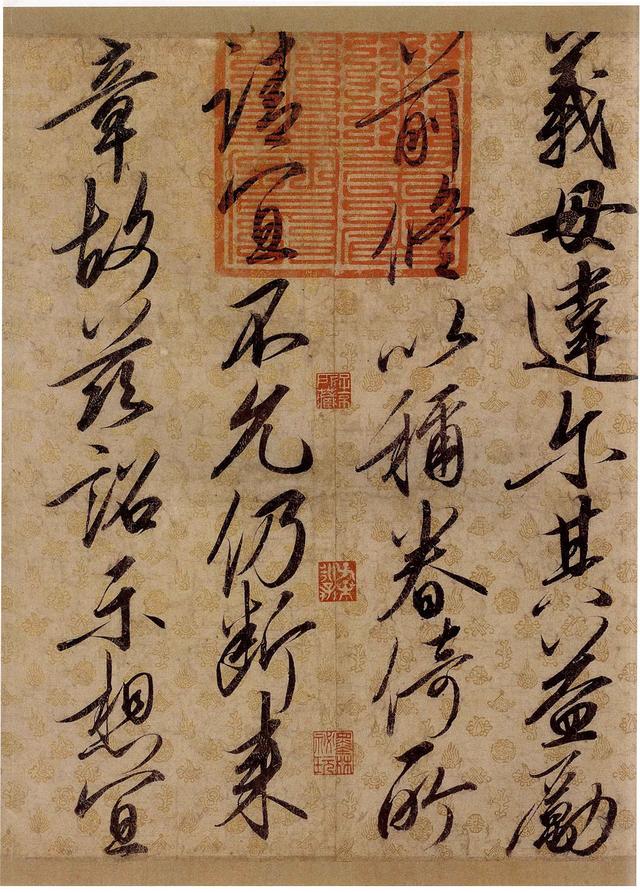 義毋違尔其益勵
前修以稱眷倚所
請宜不允仍斷来
章故茲詔示想宜